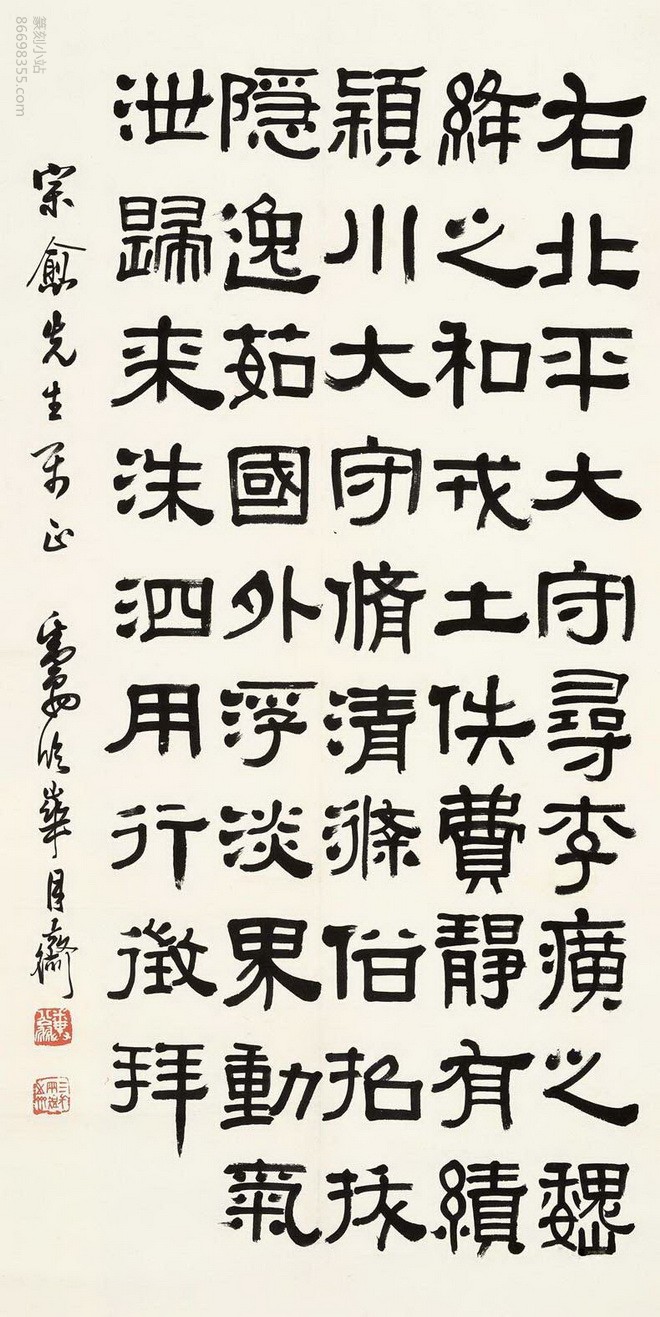 右北平大守尋李癀之魏
絳之和戎土佚費靜有績
穎川大守脩清滌俗招拔
隐逸茹國外浮淡界動氣
泄歸来洙泗用行徵拜
先生正
篆刻小站
86698355.com